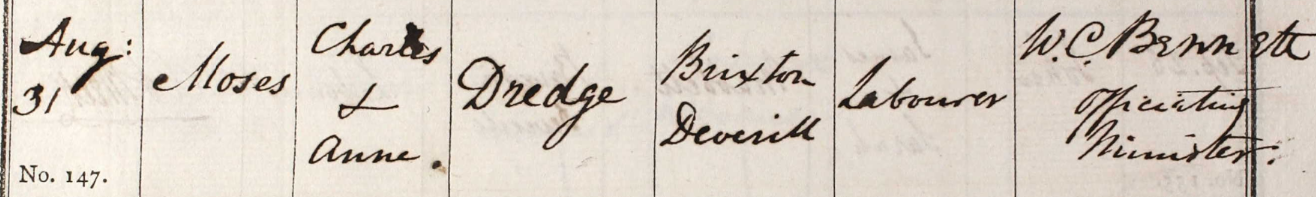 Aug:
31
No. 147.
Moses
Charles
&
Anne.
Dredge
Brixton
Deverill
Labourer
W. C. Bennett
officiating
Minister.